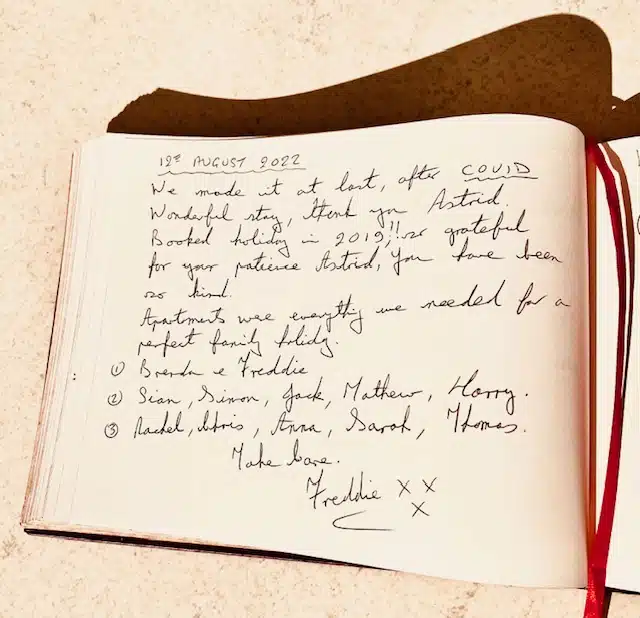 12ᵗʰ AUGUST 2022
We made it at last, after COVID
Wonderful stay, thank you Astrid.
Booked holiday in 2019!! so grateful
for your patience Astrid, you have been
so kind.
Apartments were everything we needed for a
perfect family holiday.
① Brenda e Freddie
② Sian, Simon, Jack, Mathew, Harry.
③ Rachel, Chris, Anna, Sarah, Thomas.
Take Care.
Freddie x x
x